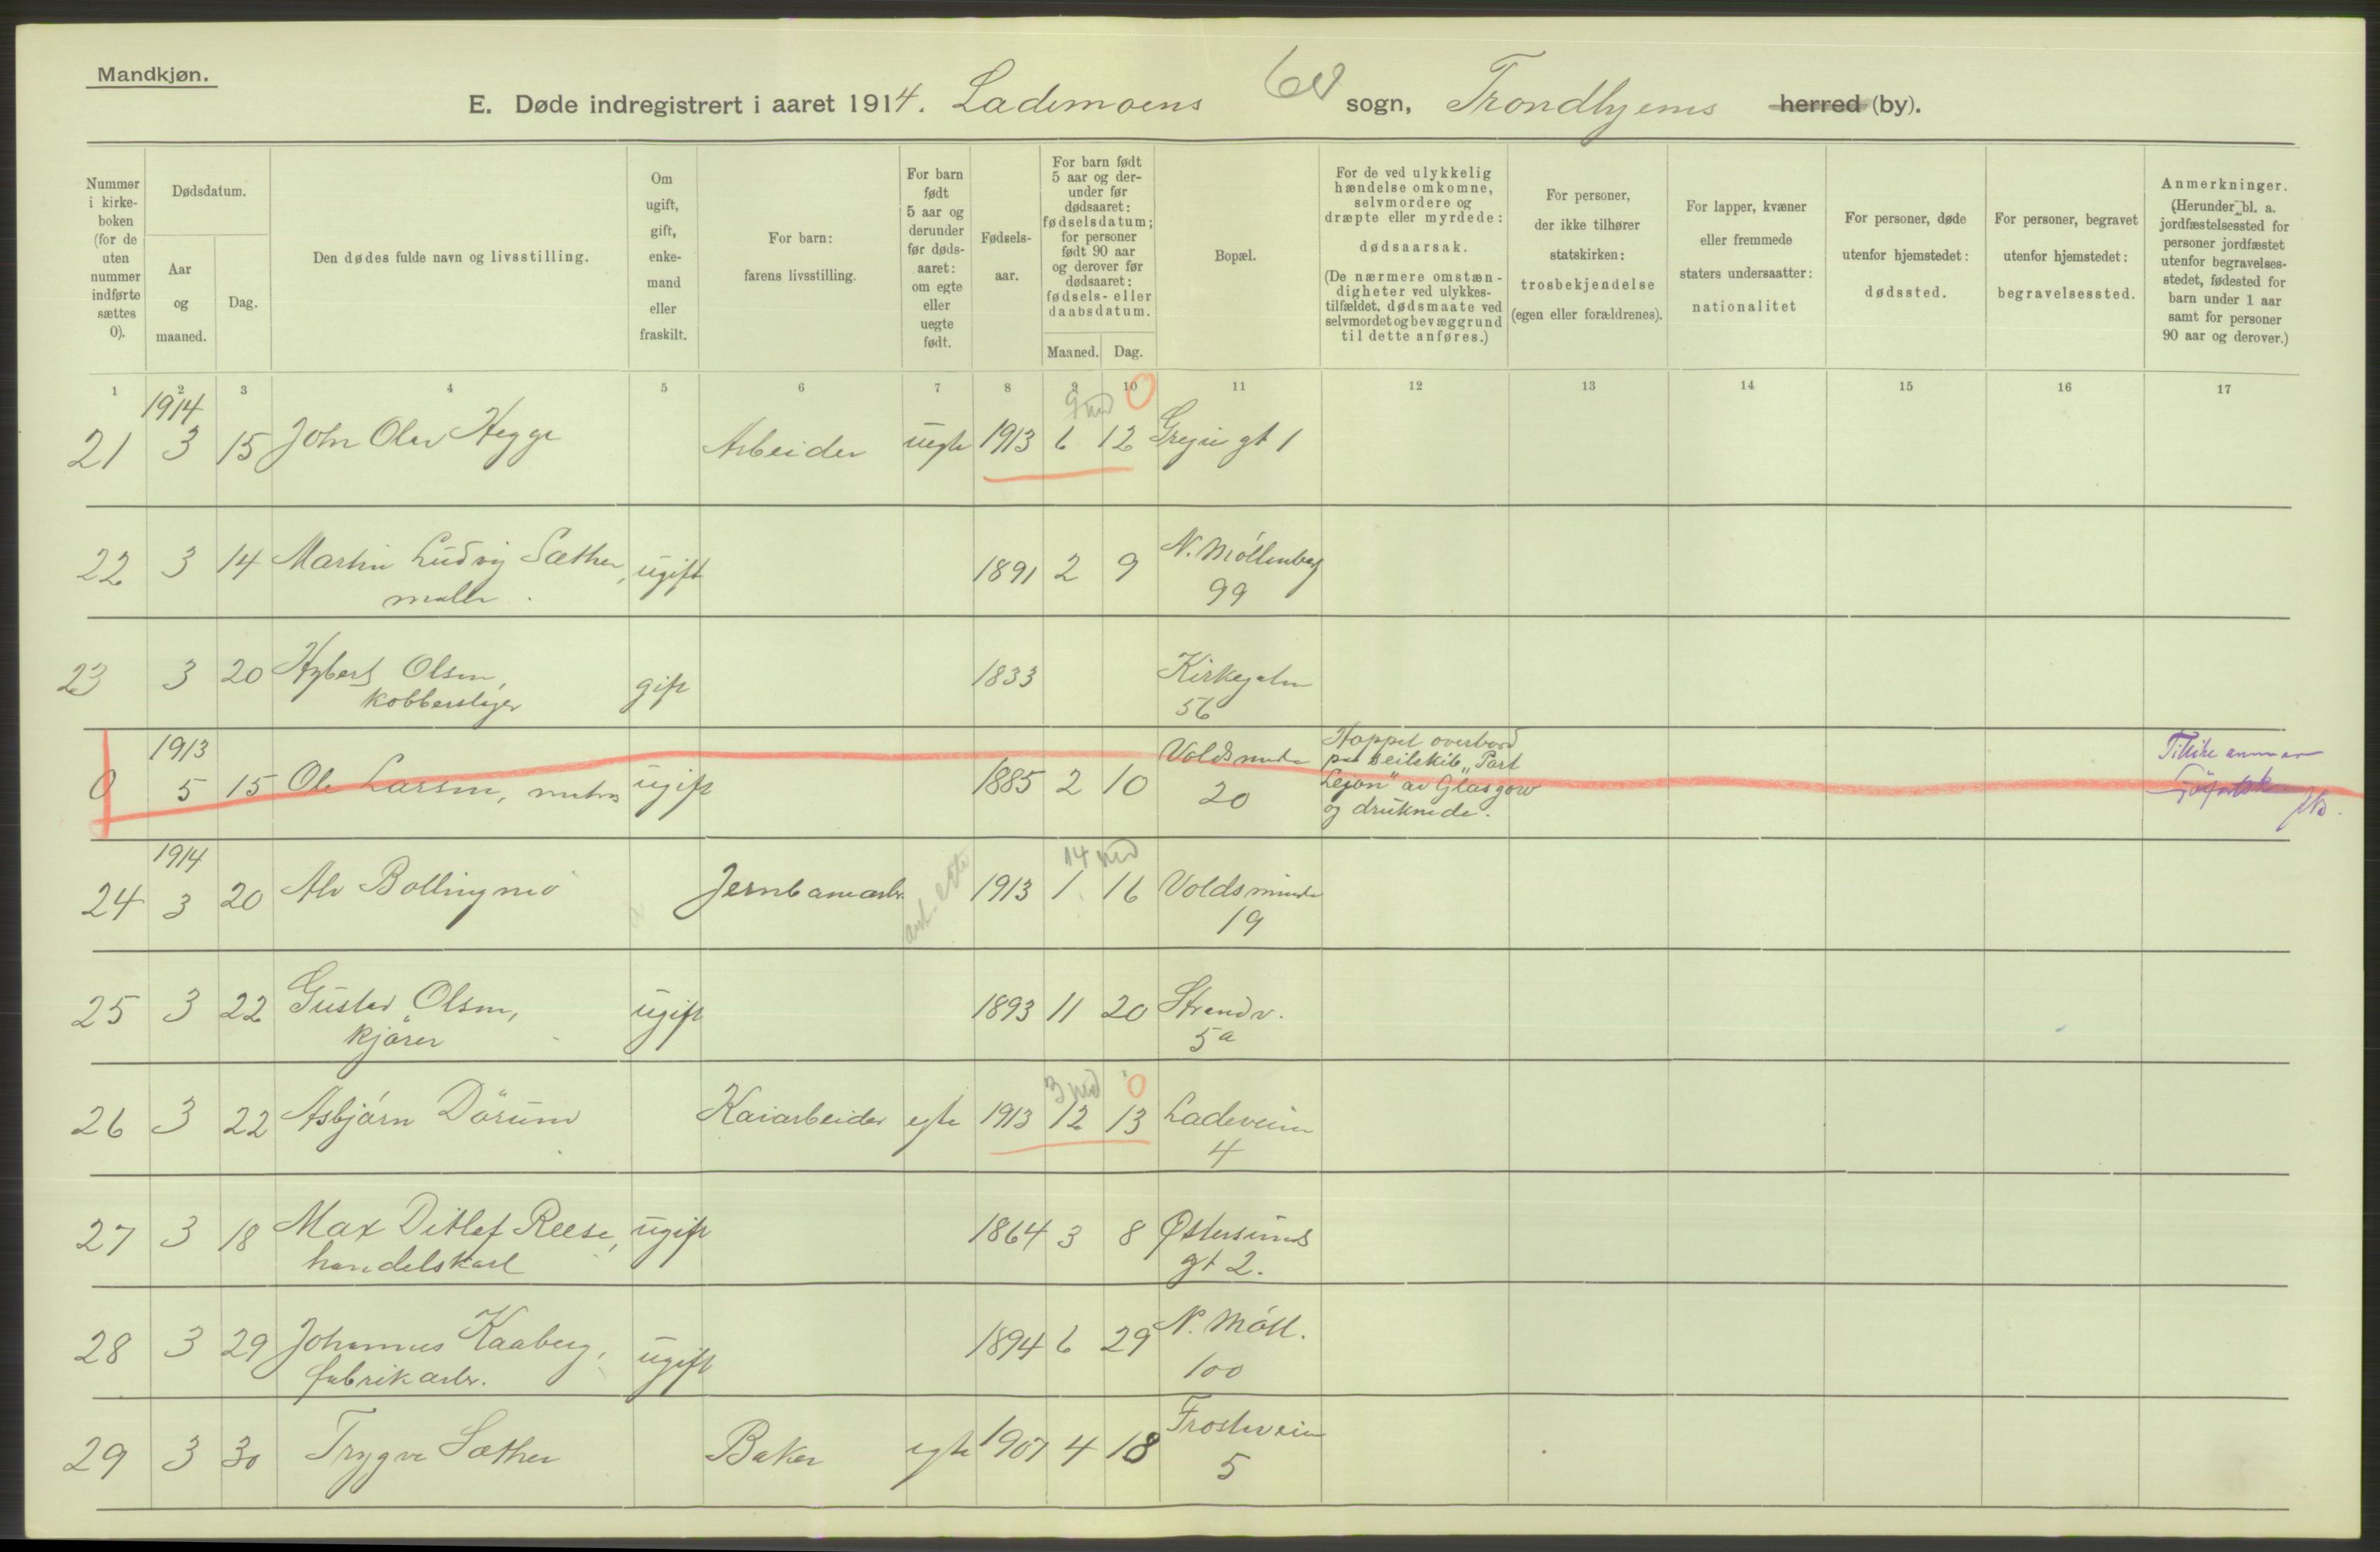 Mandkjøn.
E. Døde indregistrert i aaret 1914. Lademoens sogn, Trondhjems herred (by).
Nummer i kirke-boken (for de uten nummer indførte sættes 0).
Dødsdatum.
Aar og maaned.
Dag.
Den dødes fulde navn og livsstilling.
Om ugift, gift, enke-mand eller fraskilt.
For barn: farens livsstilling.
For barn født 5 aar og derunder før døds-aaret: om egte eller uegte født.
Fødsels-aar.
For barn født 5 aar og der-under før dødsaaret: fødselsdatum; for personer født 90 aar og derover før dødsaaret: fødsels- eller daabsdatum.
Maaned. Dag.
Bopæl.
For de ved ulykkelig hændelse omkomne, selvmordere og dræpte eller myrdede: dødsaarsak. (De nærmere omstæn-digheter ved ulykkes-tilfældet, dødsmaate ved selvmordet og bevæggrund til dette anføres.)
For personer, der ikke tilhører statskirken: trosbekjendelse (egen eller forældrenes).
For lapper, kvæner eller fremmede staters undersaatter: nationalitet
For personer, døde utenfor hjemstedet: dødssted.
For personer, begravet utenfor hjemstedet: begravelsessted.
Anmerkninger. (Herunder bl. a. jordfæstelsessted for personer jordfæstet utenfor begravelses-stedet, fødested for barn under 1 aar samt for personer 90 aar og derover.)
1 2 3 4 5 6 7 8 9 10 11 12 13 14 15 16 17
1914 9 md 0
21 3 15 John Olav Hegge Arbeider uegte 1913 6 12 gt 1
22 3 14 Martin Ludvig Sæther, ugift 1891 2 9 N. Möllenberg
maler. 99
23 3 20 Olsen, gift 1833
kobberslager 56
1913 Voldsminde Hoppet overbord
0 5 15 Ole Larsen, matros ugift 1885 2 10 20 paa seilskib "Port
av Glasgow
og druknede.
1914 14 md
24 3 20 Alv Bollingmo Jernbanearb. ant. egte 1913 1 16 Voldsminde
19
25 3 22 Gustav Olsen, ugift 1893 11 20 Strandv.
kjörer 5a
3 md 0
26 3 22 Asbjörn Dörum Kaiarbeider egte 1913 12 13 Ladeveien
4
27 3 18 Max Ditlef Reese, ugift 1864 3 8 Østersunds
handelskarl gt 2.
28 3 29 Johannes Kaaberg, ugift 1894 6 29 N. Möll.
fabrikarb. 100
29 3 30 Trygve Sæther Baker egte 1907 4 18 Frosteveien
5